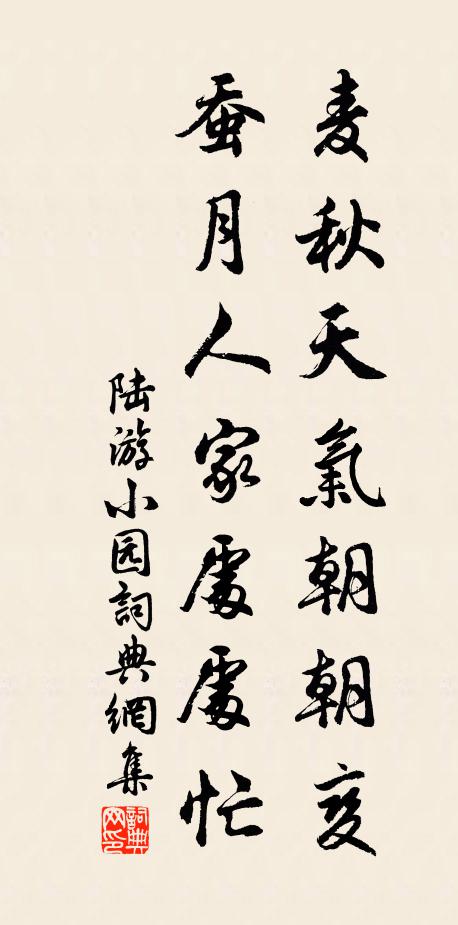 麦秋天氣朝朝变
蚕月人家處處忙
陆游小园詞典網集
詞典网印